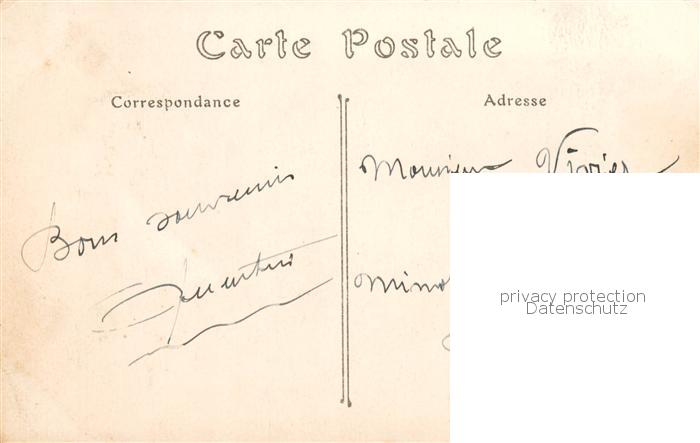 Carte Postale
Correspondance
Adresse
Bons souvenirs
Monsieur Vivier
privacy protection
Datenschutz